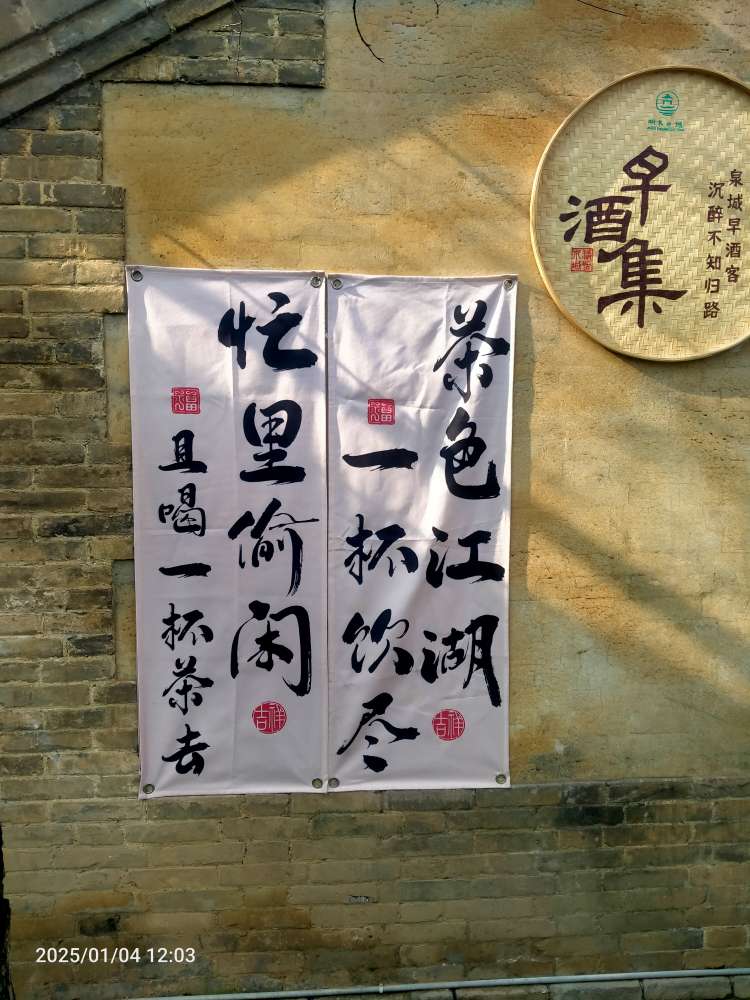 早酒集
泉城早酒客
沉醉不知归路
茶色江湖
一杯饮尽
吉祥
忙里偷闲
且喝一杯茶去
吉祥
2025/01/04 12:03